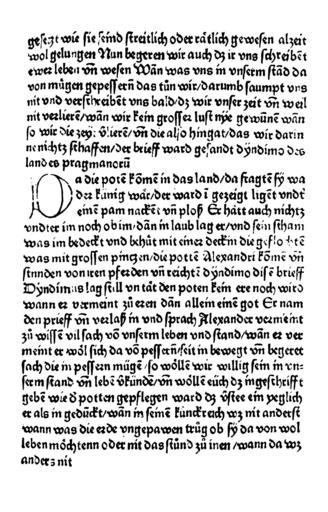 gesetzt wie sie seind streitlich oder rätlich gewesen alzeit
wol gelungen Nun begeren wir auch dz ir vns schreibēt
ewer leben vñ wesen Wān was vns in vnserm stād da
von mügen gepessern das tün wir/darumb saumpt vns
nit vnd verschreibent vns bald/dz wir vnser zeit vn̄ weil
nit verlierē/wān wir kein grosser lust nye gewūnē wān
so wir die zeyt v̄lierē/vn̄ die also hingat/das wir darin
nē nichtz schaffen/der brieff ward gesandt dyndimo des
landes pragmanorū
Da die potē kōmē in das land/da fragtē sy wa
der künig wär/der ward ī gezeigt ligēt vndr̄
einē pam nacket vn̄ ploß Er hatt auch nichtz
vndter im noch ob im/dān in laub lag er/vnd sein scham
was im bedeckt vnd behüt mit einer deckin die geflochtē
was mit grossen pintzen/die potē Alexandri kōmē vn̄
stunden von iren pferden vn̄ reichtē dyndimo disē brieff
Dyndimus lag still vn̄ tät den poten kein ere noch wird
wann er vermeint zu erē dān allein einē got Er nam
den prieff vn̄ verlaß in vnd sprach Alexander vermeint
zů wissē vil sach vō vnserm leben vnd stand/wān er ver
meint er wöl sich da vō pessern/seit in bewegt vn̄ begeret
sach die in pessern müge/so wöllē wir willig sein in vn⸗
serm stand vn̄ lebē v̄kündē/vn̄ wöllē eüch dz ingeschrifft
gebē wie d̄ potten gepflegen ward dz v̄stee ein yeglich
er als in gedückt/wān in seinē künckreich wz nit anderst
wann was die erde vngepawen trůg ob sy da von wol
leben möchtenn oder nit das stůnd zů inen/wann da wz
anders nit